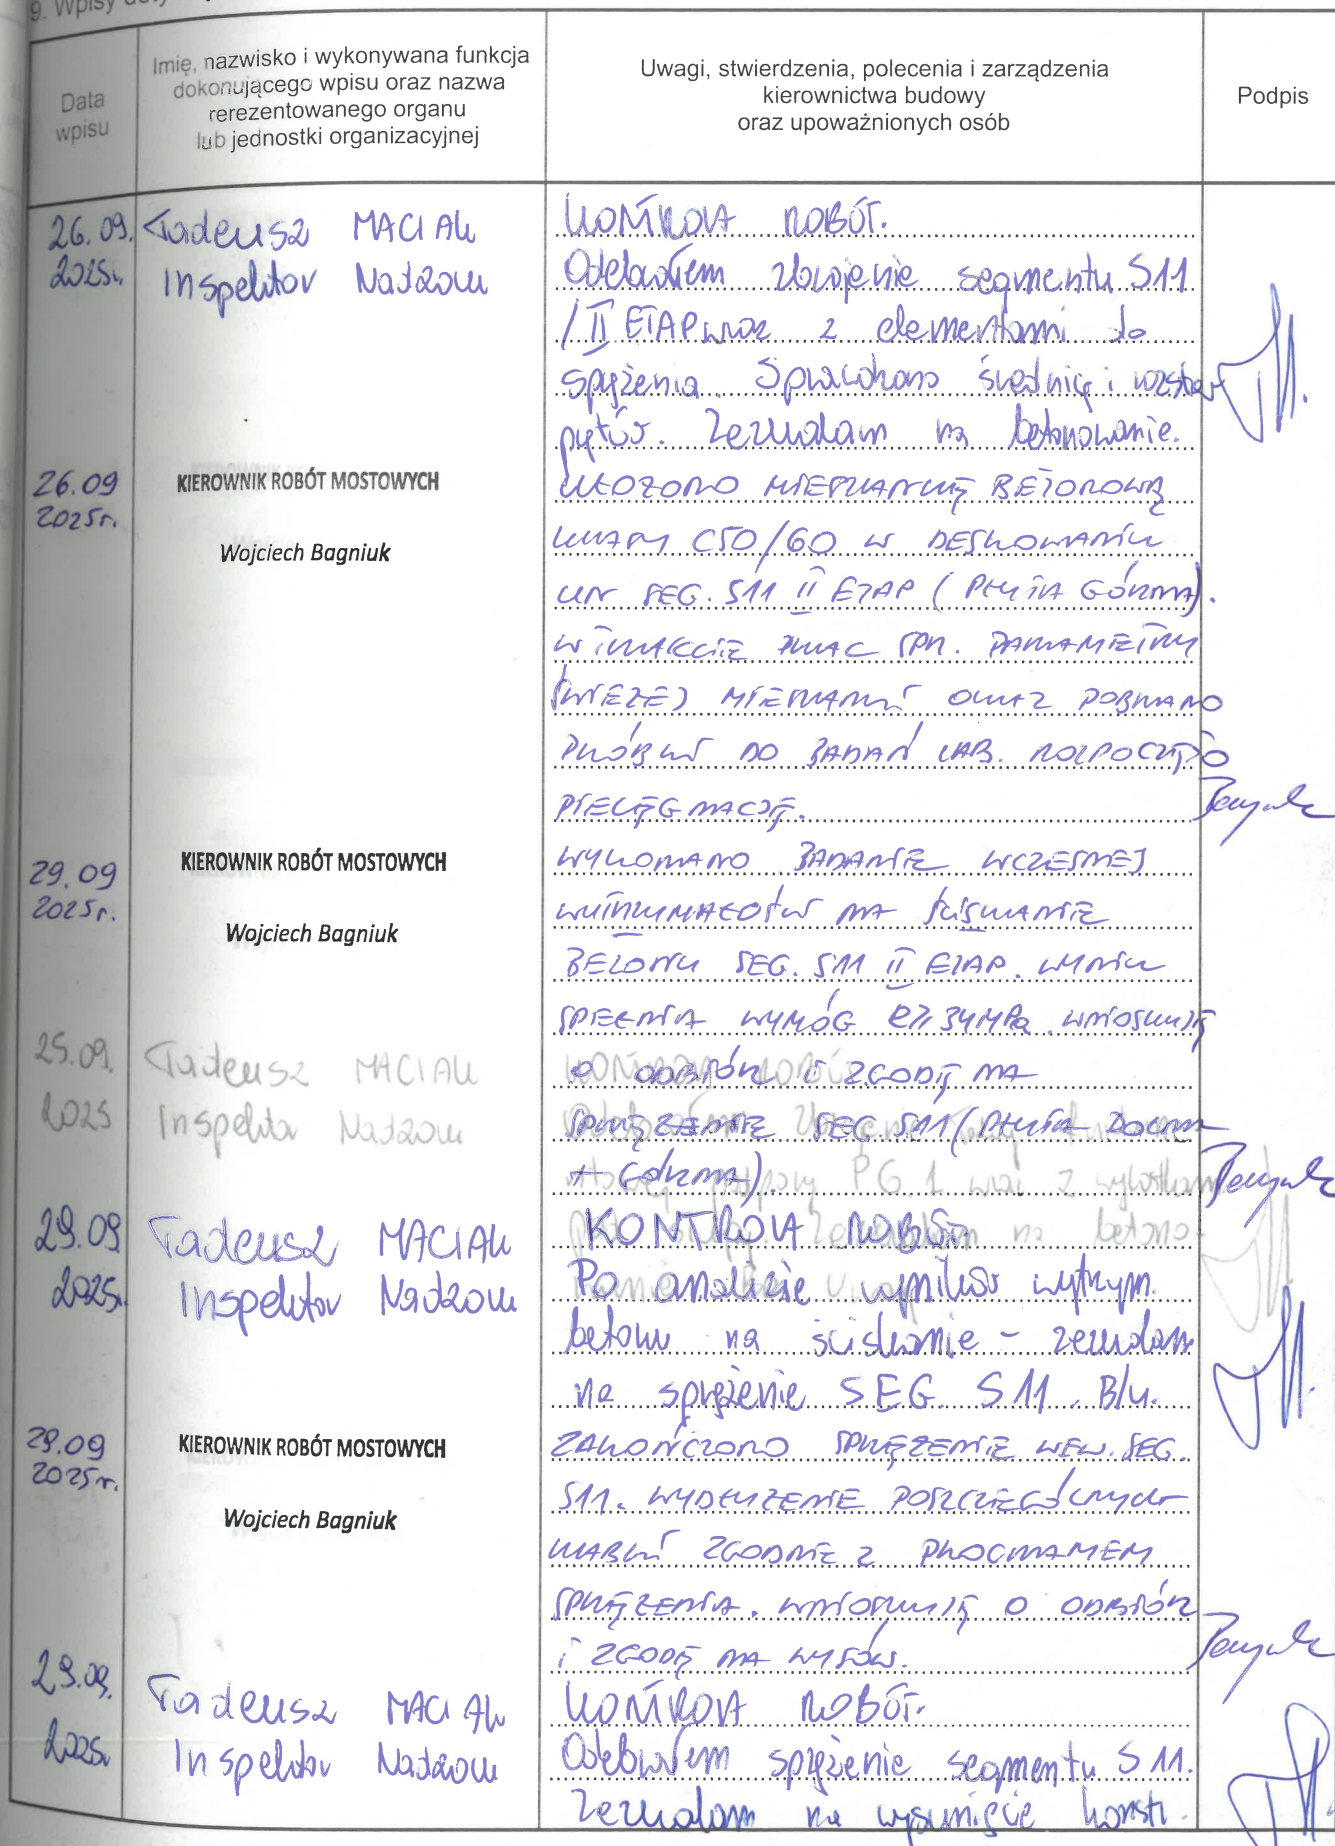 9. Wpisy
Data
wpisu
Imię, nazwisko i wykonywana funkcja
dokonującego wpisu oraz nazwa
rerezentowanego organu
lub jednostki organizacyjnej
Uwagi, stwierdzenia, polecenia i zarządzenia
kierownictwa budowy
oraz upoważnionych osób
Podpis
26.09.
2025r.
Tadeusz MACIAK
Inspektor Nadzoru
KONTROLA ROBÓT.
Odebrałem zbrojenie segmentu S11
/ II ETAP wraz z elementami do
sprężenia. Sprawdzono średnicę i rozstaw
prętów. Zezwalam na betonowanie.
26.09
2025r.
KIEROWNIK ROBÓT MOSTOWYCH
Wojciech Bagniuk
UŁOŻONO MIESZANKĘ BETONOWĄ
KLASY C50/60 W DESKOWANIU
UN SEG. S11 II ETAP (PŁYTA GÓRNA).
W TRAKCIE PRAC SPR. PARAMETRY
ŚWIEŻEJ MIESZANKI ORAZ POBRANO
PRÓBKI DO BADAŃ LAB. ROZPOCZĘTO
PIELĘGNACJĘ.
29.09
2025r.
KIEROWNIK ROBÓT MOSTOWYCH
Wojciech Bagniuk
WYKONANO BADANIE WCZESNEJ
WYTRZYMAŁOŚCI NA ŚCISKANIE
BETONU SEG. S11 II ETAP. WYNIK
SPEŁNIA WYMÓG R≥34MPa. WNIOSKUJĘ
O ODBIÓR I ZGODĘ NA
SPRĘŻENIE SEG. S11 (PŁYTA DOLNA
+ GÓRNA).
25.09.
2025
Tadeusz MACIAK
Inspektor Nadzoru
29.09
2025r.
Tadeusz MACIAK
Inspektor Nadzoru
KONTROLA ROBÓT
Po analizie wyników wytrzym.
betonu na ściskanie - zezwalam
na sprężenie SEG. S11. B/u.
29.09
2025r.
KIEROWNIK ROBÓT MOSTOWYCH
Wojciech Bagniuk
ZAKOŃCZONO SPRĘŻENIE WEW. SEG.
S11. WYDŁUŻENIE POSZCZEGÓLNYCH
KABLI ZGODNIE Z PROGRAMEM
SPRĘŻENIA. WNIOSKUJĘ O ODBIÓR
I ZGODĘ NA WYSÓW.
29.09.
2025r
Tadeusz MACIAK
Inspektor Nadzoru
KONTROLA ROBÓT.
Odebrałem sprężenie segmentu S11.
Zezwalam na wysunięcie konstr.